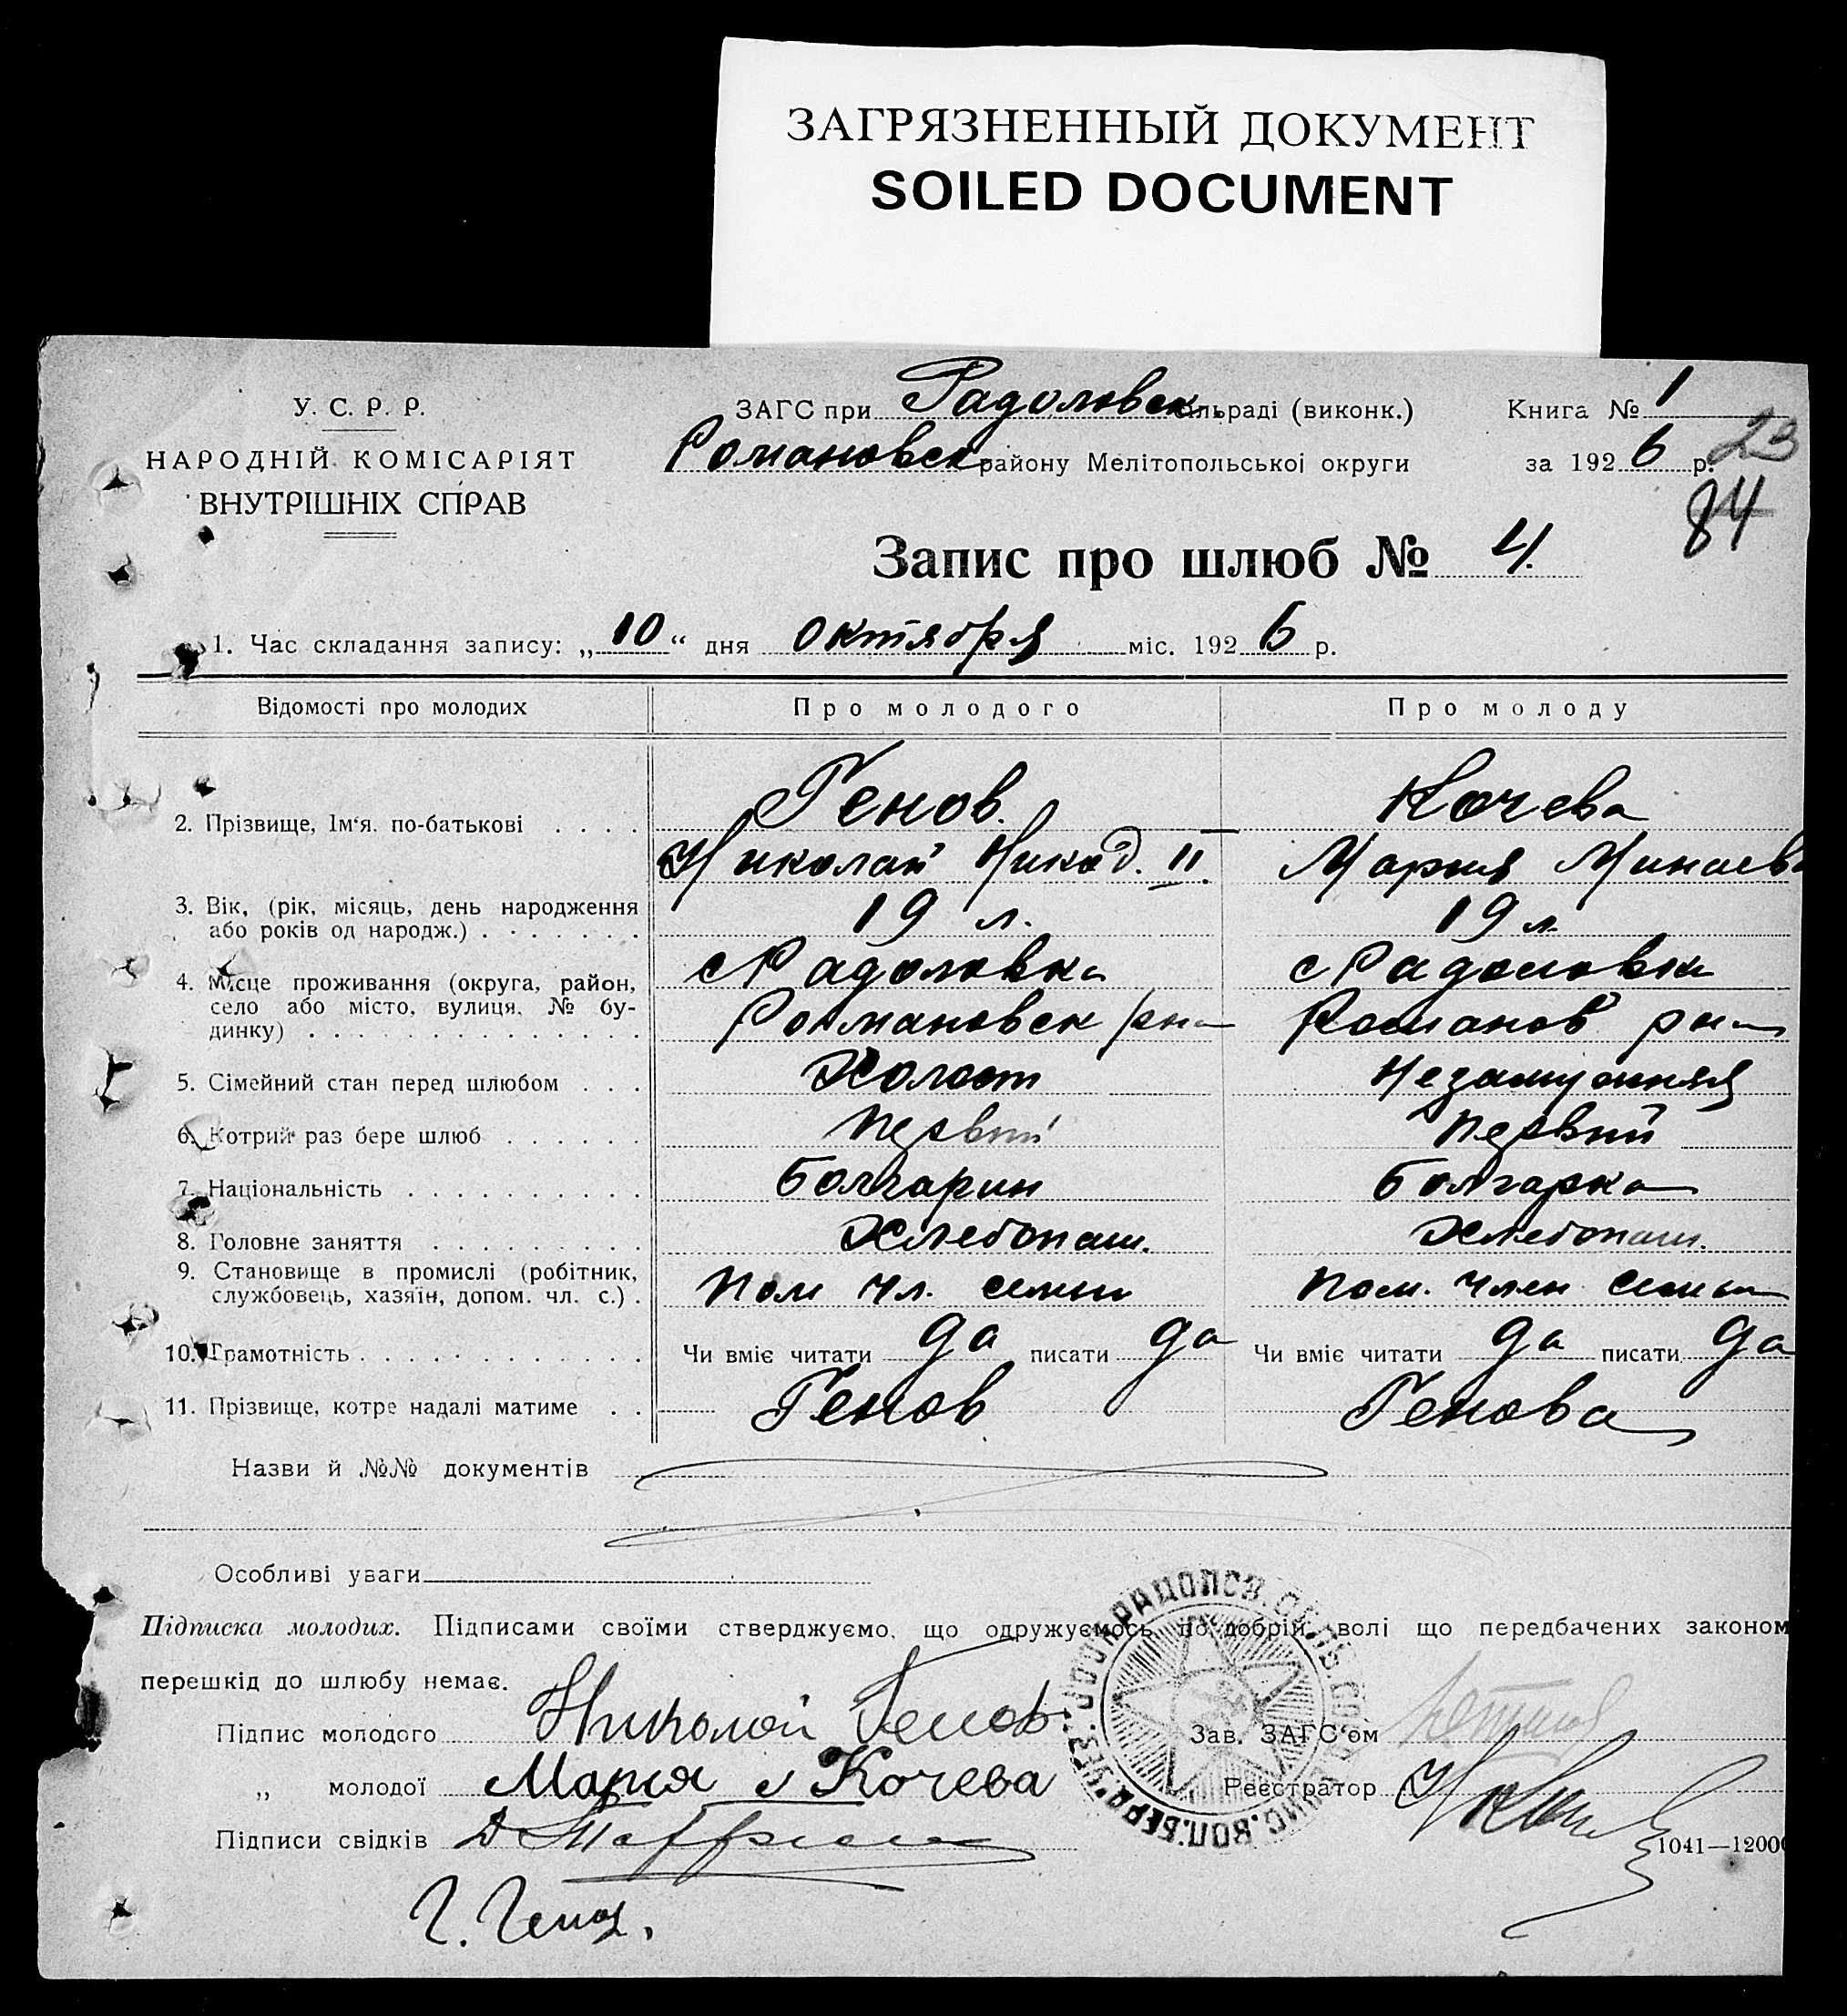 ЗАГРЯЗНЕННЫЙ ДОКУМЕНТ
SOILED DOCUMENT
У. С. Р. Р.
НАРОДНІЙ КОМІСАРІЯТ
ВНУТРІШНІХ СПРАВ
ЗАГС при Радоловск. сільраді (виконк.)
Романовск району Мелітопольської округи
Книга № 1
за 1926 р.
23
84
Запис про шлюб № 4.
1. Час складання запису: „10“ дня октября міс. 1926 р.
Відомості про молодих Про молодого Про молоду
2. Прізвище, Ім‘я. по-батькові . . . . Генов. Кочева
Николай Никод. II. Мария Минаев
3. Вік, (рік, місяць, день народження
або років од народж.) . . . . . . . 19 л. 19 л.
4. Місце проживання (округа, район,
село або місто, вулиця, № бу-
динку) . . . . . . . . . . . . .
с Радоловка с Радоловка
Романовск рна Романов рна
5. Сімейний стан перед шлюбом . . . Холост Незамужняя
6. Котрий раз бере шлюб . . . . . . Первый Первый
7. Національність . . . . . . . . . . Болгарин Болгарка
8. Головне заняття . . . . . . . . . Хлебопаш. Хлебопаш.
9. Становище в промислі (робітник,
службовець, хазяїн, допом. чл. с.) . Пом чл. семьи Пом. член семьи
10. Грамотність . . . . . . . . . . . . Чи вміє читати да писати да Чи вміє читати да писати да
11. Прізвище, котре надалі матиме . . Генов Генова
Назви й №№ документів
Особливі уваги
Підписка молодих. Підписами своїми стверджуємо, що одружуємось по добрій волі що передбачених законом
перешкід до шлюбу немає.
Підпис молодого Николай Генов Зав. ЗАГС‘ом
„ молодої Мария Кочева Реєстратор
Підписи свідків
1041—12000
Г. Генов.